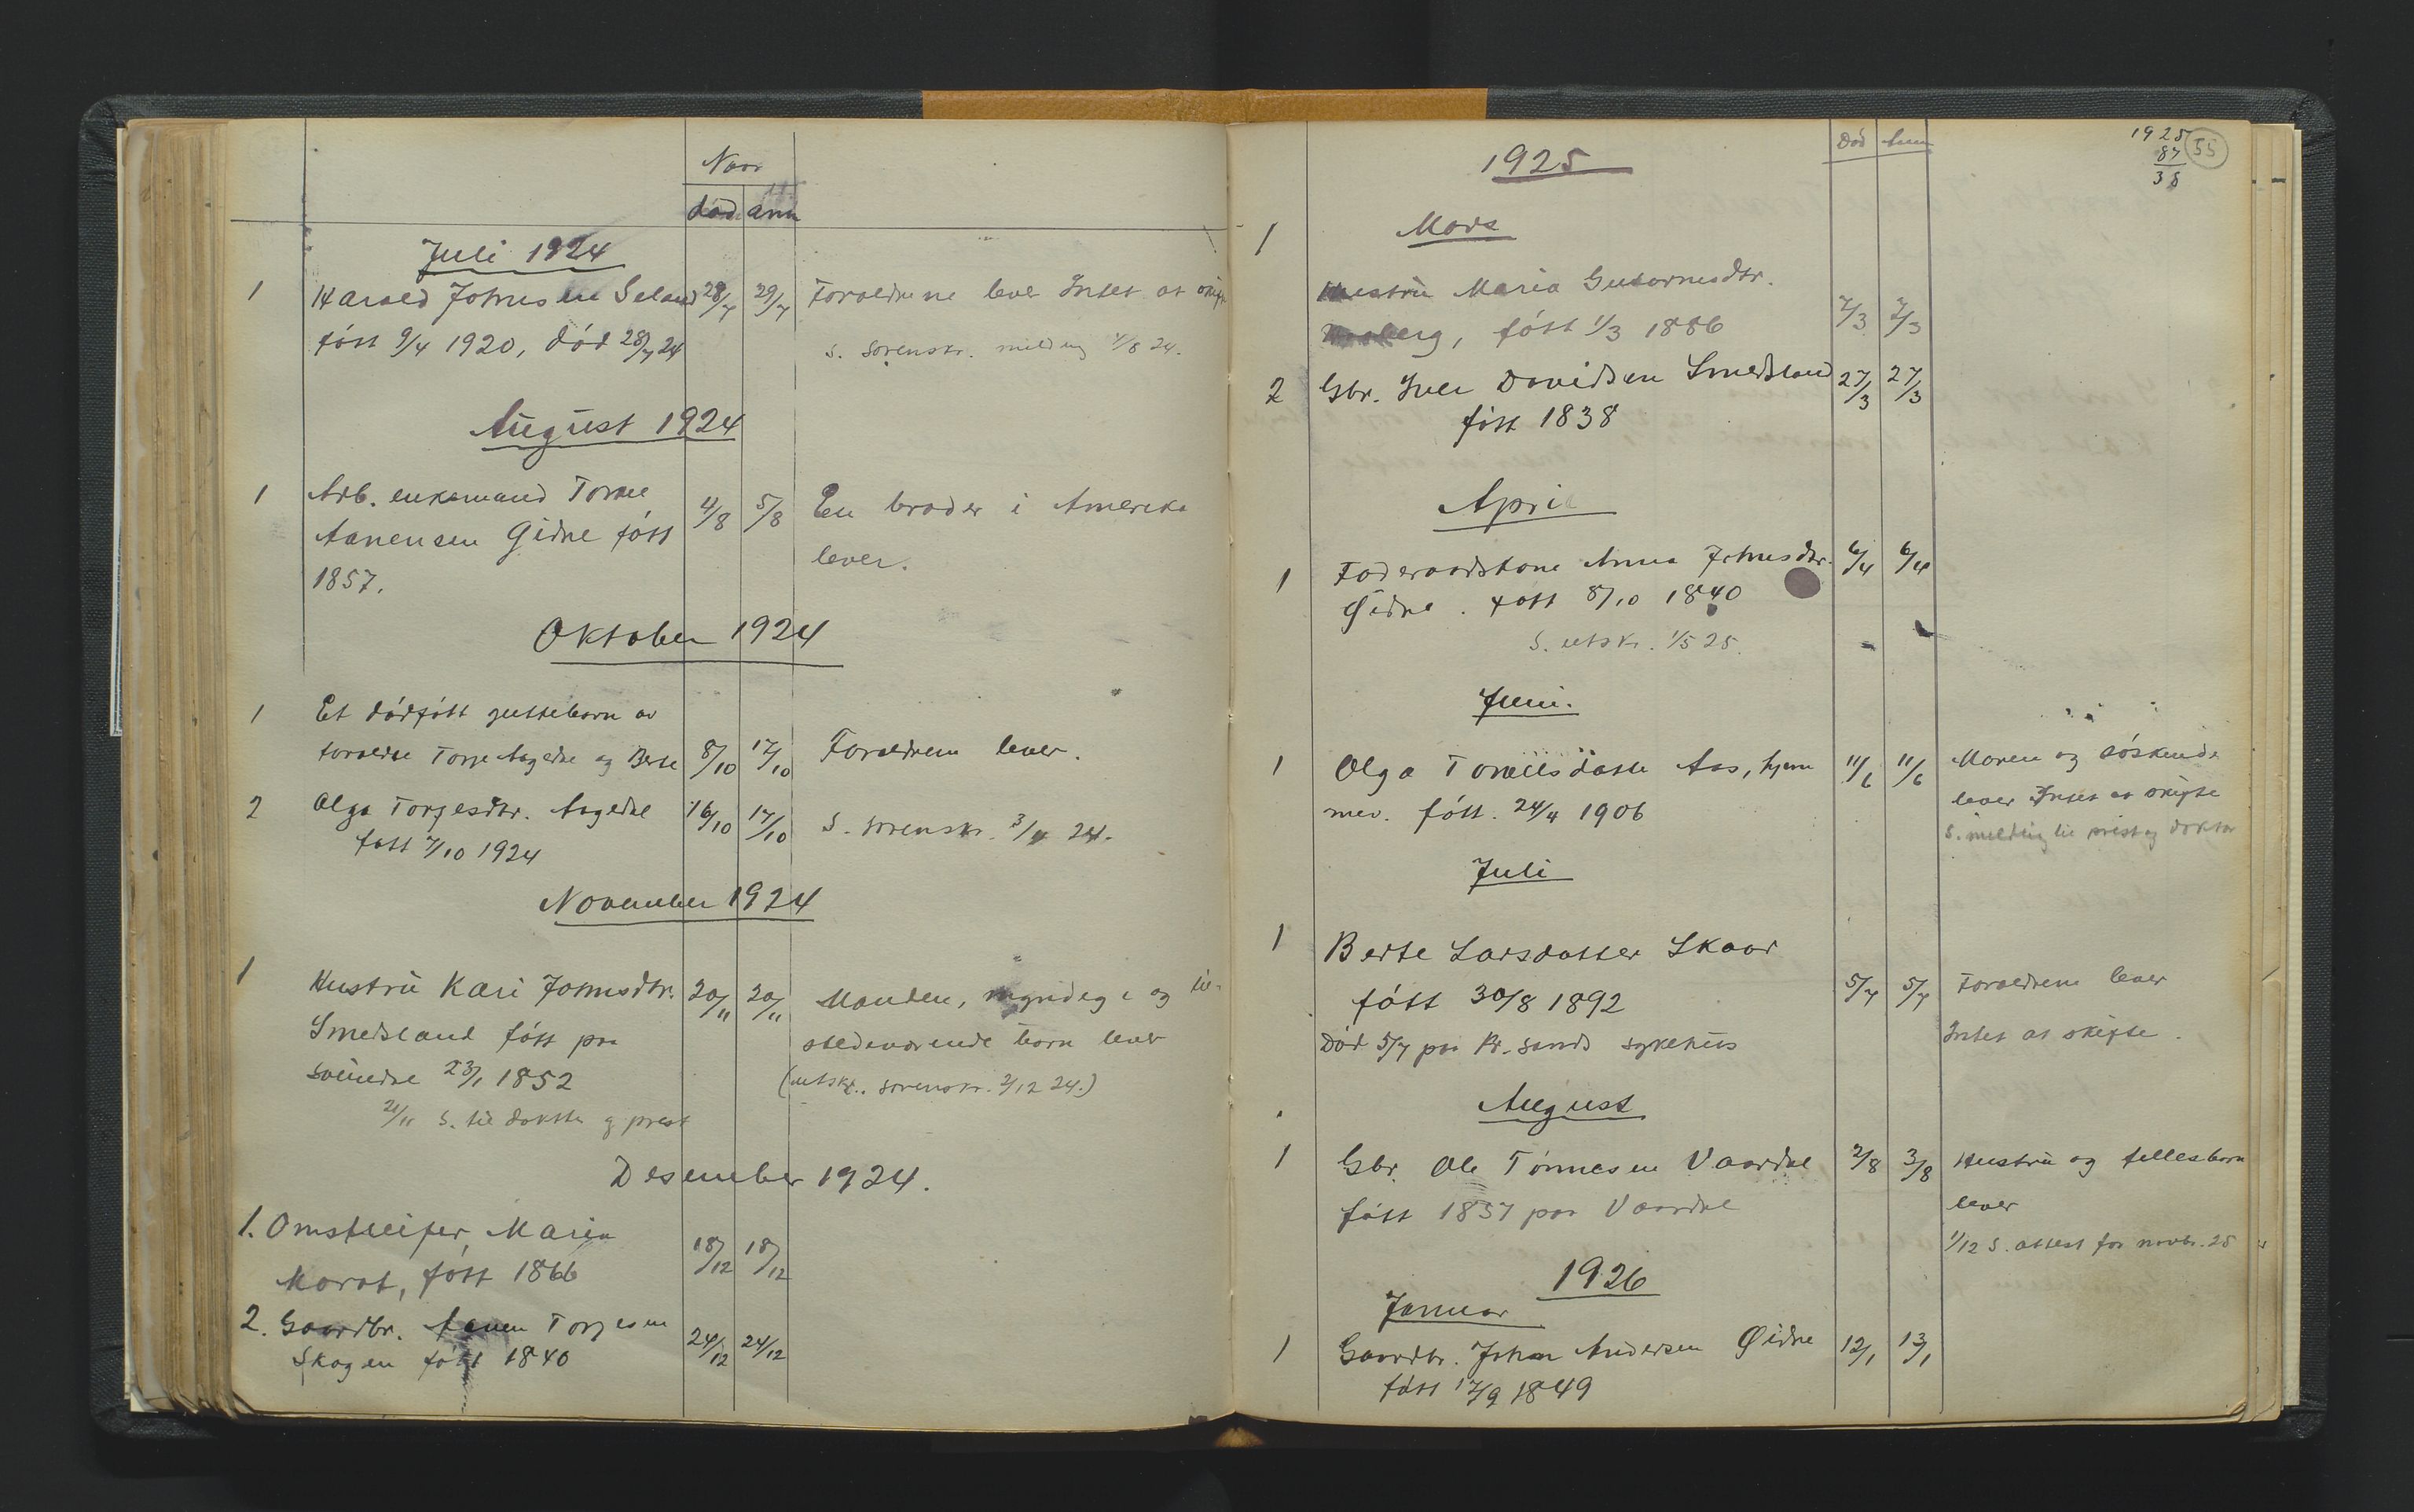 Naar
død ann
Juli 1924
1 Harald Johnsen Seland 28/7 29/7 Foreldrene lever Intet at skifte
født 9/4 1920, død 28/7 24
s. sorenskr. melding 1/8 24.
August 1924
1 Arb. enkemand Torne 4/8 5/8 En broder i Amerika
Aanensen Gidne født lever.
1857.
Oktober 1924
1 Et dødfødt guttebarn av
foreldre Torje Aagedal og Berte 8/10 17/10 Foreldrene lever.
2 Olga Torjesdtr. Aagedal 16/10 17/10 S. sorenskr. 3/11 24.
født 7/10 1924
November 1924
1 Hustrü Kari Johnsdtr. 20/11 20/11 Manden, myndige og til-
Smedsland født paa stedeværende barn lever
23/1 1852 (utskr. sorenskr. 2/12 24.)
21/11 S. til doktor og prest
Desember 1924.
1. Omstreifer, Maria 18/12 18/12
født 1866
2. Gaardbr. Aanen Torjesen 24/12 24/12
Skagen født 1840
1925
Død Ann
1925
87
38
55
1 Mars
Hustrü Maria Gutormsdtr.
født 1/3 1886 7/3 7/3
2 Gbr. Iver Davidsen Smedsland 27/3 27/3
født 1838
April
1 Foderaadskone Anna Johnsdtr. 6/4 6/4
Øidne. født 8/10 1840
S. utskr. 1/5 25.
Juni.
1 Olga Torkilsdatter Aas, hjem 11/6 11/6 Moren og søskende
mev. født. 24/4 1906 lever Intet at skifte
S. melding til prest og doktor
Juli
1 Berte Larsdatter Skaar
født 30/8 1892 5/7 5/7 Foreldrene lever
Død 5/7 paa Kr.sands sykehüs Intet at skifte.
August
1 Gbr. Ole Tønnesen Vaardal 2/8 3/8 Hustrü og fellesbarn
født 1857 paa Vaardal lever
1/12 S. attest for novbr. 25
1926
Januar
1 Gaardbr. Johan Andersen Øidne 12/1 13/1
født 17/9 1849